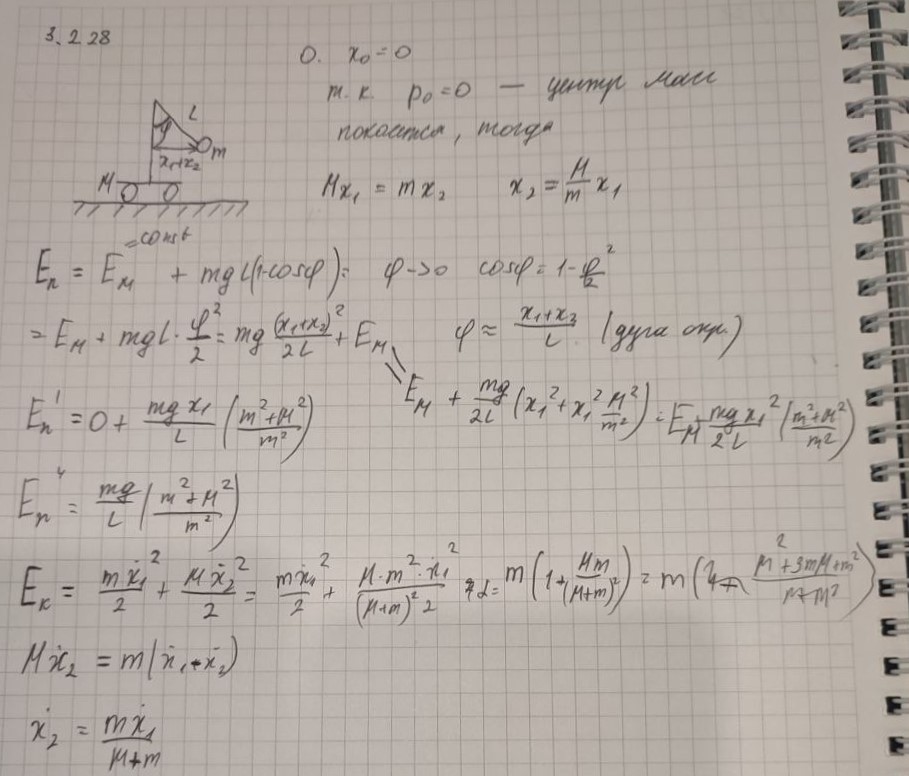 3.2.28
0. x₀ = 0
т.к. p₀ = 0 — центр масс
покоится, тогда
φ L m x₁+x₂ M
Mx₁ = mx₂ x₂ = M/m x₁
Eп = Eм (=const) + mgL(1-cosφ) = φ->0 cosφ = 1-φ²/2
= Eм + mgL·φ²/2 = mg (x₁+x₂)²/2L + Eм φ ≈ (x₁+x₂)/L (дуга окр.)
= Eм + mg/2L (x₁² + x₁² M²/m²) = Eм + mgx₁²/2L ((m²+M²)/m²)
Eп' = 0 + mgx₁/L ((m²+M²)/m²)
Eп'' = mg/L ((m²+M²)/m²)
Eк = mẋ₁²/2 + Mẋ₂²/2 = mẋ₁²/2 + M·m²·ẋ₁²/(M+m)²2 α = m(1 + Mm/(M+m)²) = m( (M²+3mM+m²)/
Mẋ₂ = m(ẋ₁+ẋ₂)
ẋ₂ = mẋ₁/(M+m)